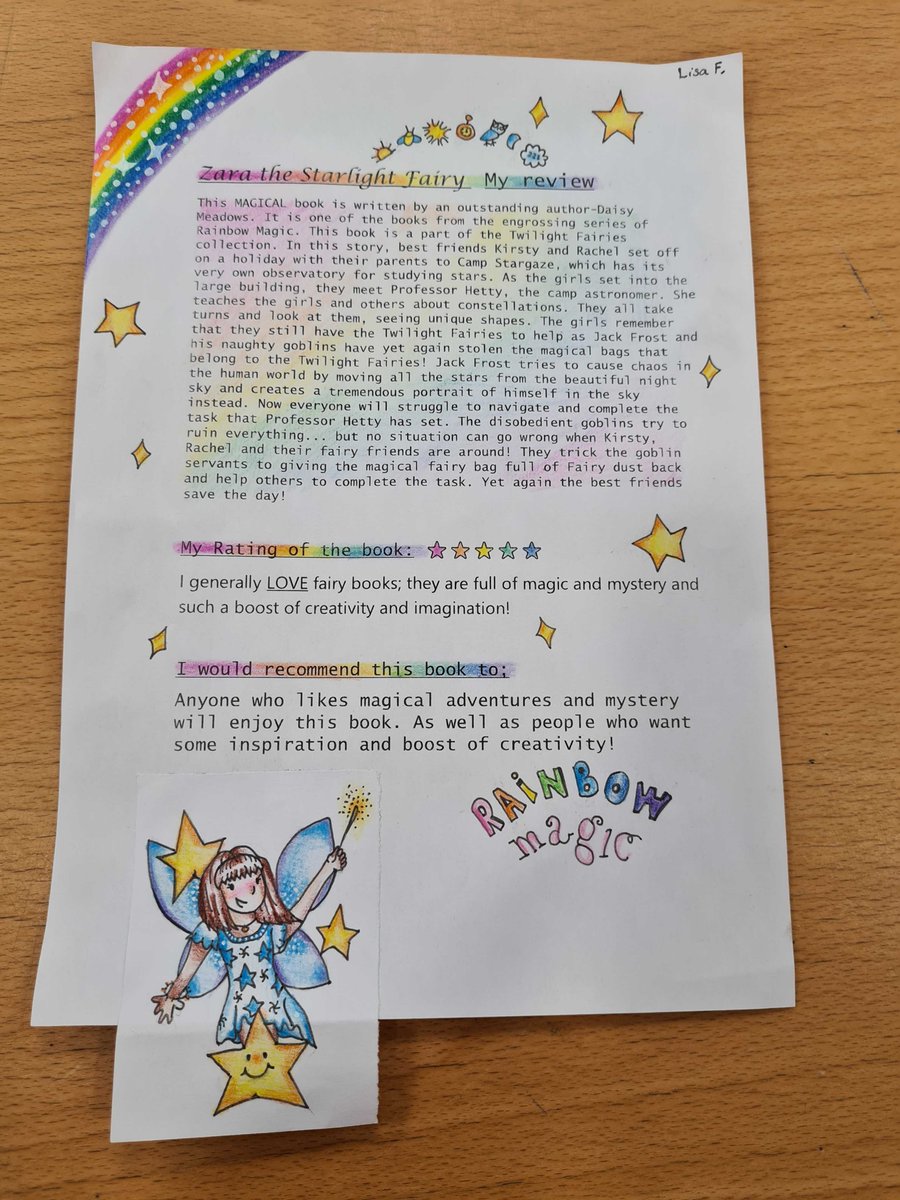 Lisa F.
Zara the Starlight Fairy My review
This MAGICAL book is written by an outstanding author-Daisy
Meadows. It is one of the books from the engrossing series of
Rainbow Magic. This book is a part of the Twilight Fairies
collection. In this story, best friends Kirsty and Rachel set off
on a holiday with their parents to Camp Stargaze, which has its
very own observatory for studying stars. As the girls set into the
large building, they meet Professor Hetty, the camp astronomer. She
teaches the girls and others about constellations. They all take
turns and look at them, seeing unique shapes. The girls remember
that they still have the Twilight Fairies to help as Jack Frost and
his naughty goblins have yet again stolen the magical bags that
belong to the Twilight Fairies! Jack Frost tries to cause chaos in
the human world by moving all the stars from the beautiful night
sky and creates a tremendous portrait of himself in the sky
instead. Now everyone will struggle to navigate and complete the
task that Professor Hetty has set. The disobedient goblins try to
ruin everything... but no situation can go wrong when Kirsty,
Rachel and their fairy friends are around! They trick the goblin
servants to giving the magical fairy bag full of Fairy dust back
and help others to complete the task. Yet again the best friends
save the day!
My Rating of the book:
I generally LOVE fairy books; they are full of magic and mystery and
such a boost of creativity and imagination!
I would recommend this book to;
Anyone who likes magical adventures and mystery
will enjoy this book. As well as people who want
some inspiration and boost of creativity!
RAiNBOW
magic